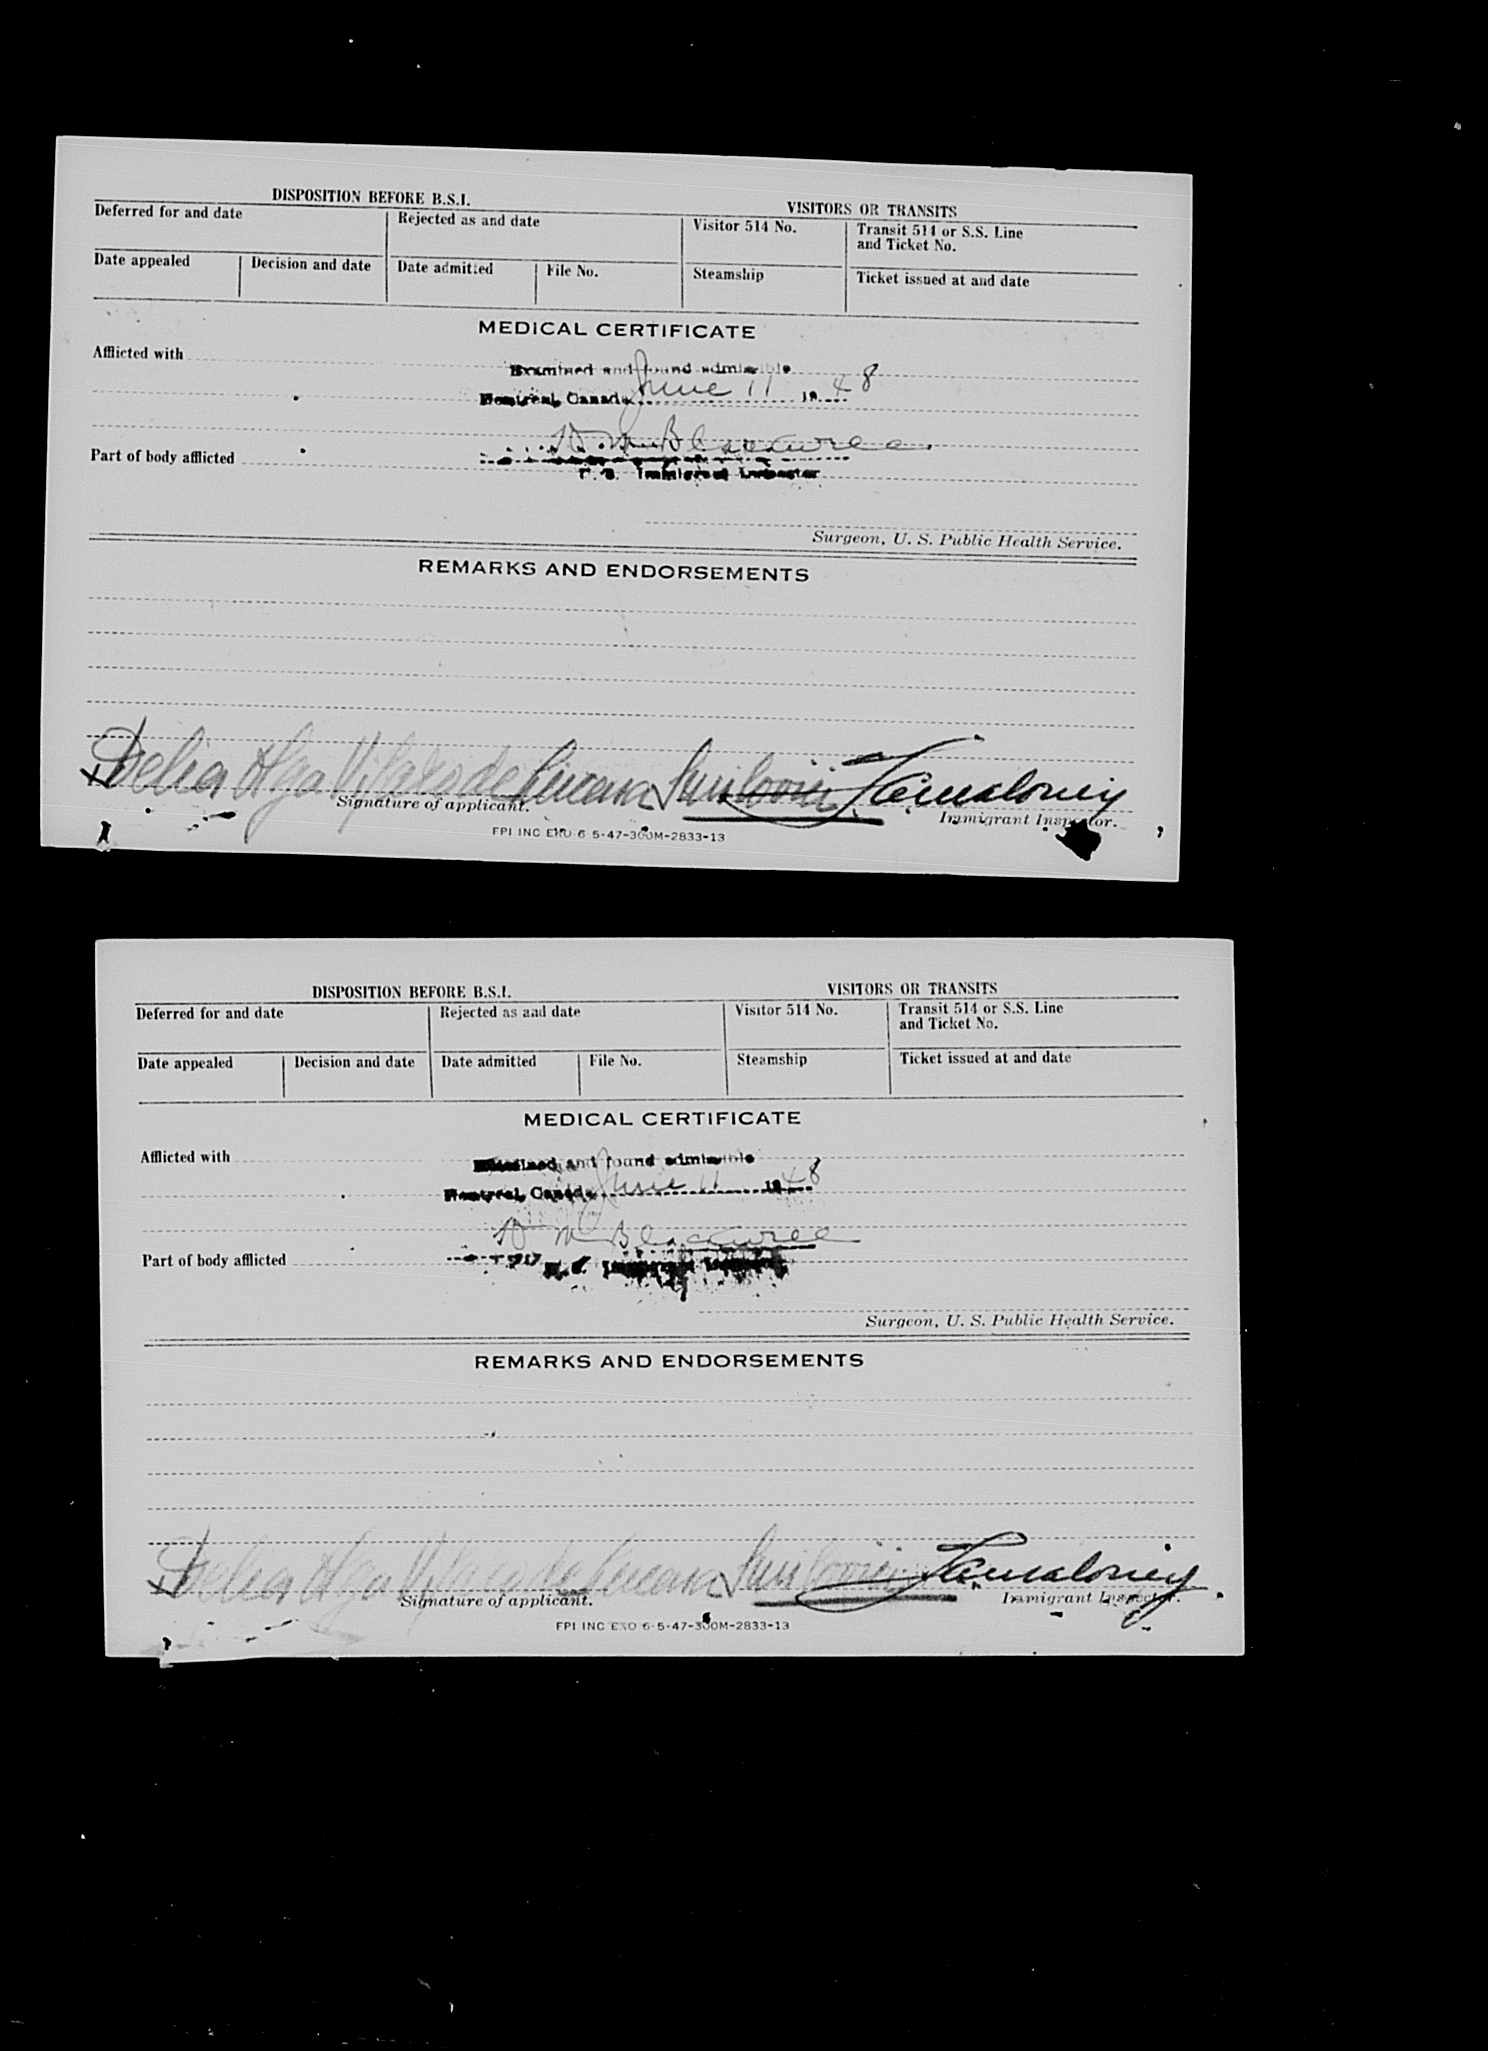 DISPOSITION BEFORE B.S.I.
VISITORS OR TRANSITS
Deferred for and date
Rejected as and date
Visitor 514 No.
Transit 514 or S.S. Line
and Ticket No.
Date appealed
Decision and date
Date admitted
File No.
Steamship
Ticket issued at and date
MEDICAL CERTIFICATE
Afflicted with
Examined and found admissible
Montreal, Canada June 11 1948
Part of body afflicted
U. S. Immigrant Inspector
Surgeon, U. S. Public Health Service.
REMARKS AND ENDORSEMENTS
Delia
Signature of applicant.
Immigrant Inspector.
FPI INC EKO 6-5-47-300M-2833-13
DISPOSITION BEFORE B.S.I.
VISITORS OR TRANSITS
Deferred for and date
Rejected as and date
Visitor 514 No.
Transit 514 or S.S. Line
and Ticket No.
Date appealed
Decision and date
Date admitted
File No.
Steamship
Ticket issued at and date
MEDICAL CERTIFICATE
Afflicted with
Examined and found admissible
Montreal, Canada June 11 1948
Part of body afflicted
U. S. Immigrant Inspector
Surgeon, U. S. Public Health Service.
REMARKS AND ENDORSEMENTS
Delia
Signature of applicant.
Immigrant Inspector.
FPI INC EKO 6-5-47-300M-2833-13